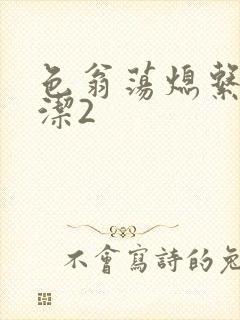 色翁荡熄繫
潔2
不會寫詩的兔